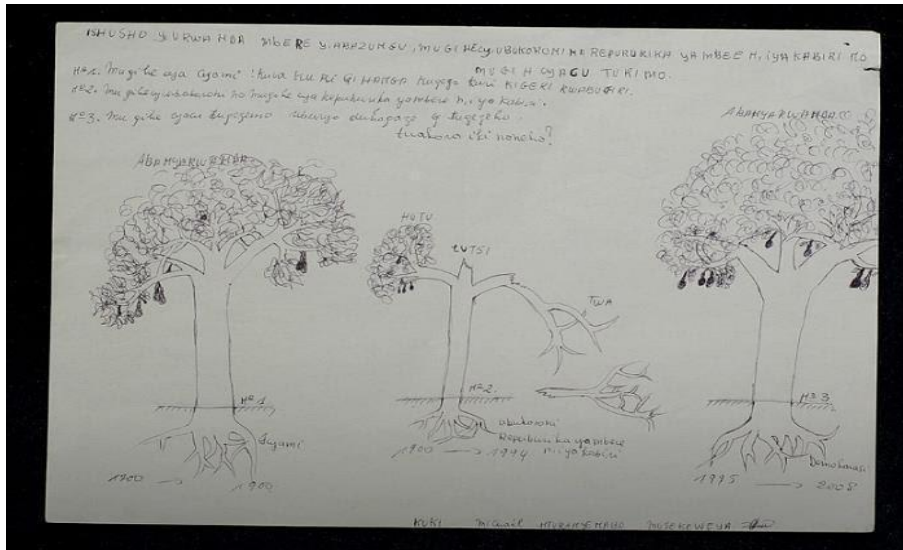 ISHUSHO Y'URWANDA MBERE Y'ABAZUNGU, MUGIHE CY'UBUKORONI NA REPUBURIKA YA MBERE N, IYA KABIRI NO
MUGIH CYACU TURIMO.
N°1. Mugihe cya Cyami : kuva KURI GIHANGA kugego kuri KIGERI RWABUGIRI.
N°2. Mu gihe cy'ubukoroni no mugihe cya Republika yambere n, iya kabiri.
N°3. Mu gihe cyacu tugezemo uburyo duhagaze y tugezeho.
twakora iki noneho?
ABANYARWANDA
HUTU
TUTSI
TWA
ABANYARWANDA
N°1
Cyami
1900 → 1900
N°2
ubukoroni
Republika yambere
n, iya kabiri
1900 → 1994
N°3
Demokarasi
1995 → 2008
KUKI Michaël NTURANYENABO MUTEKOWEYA